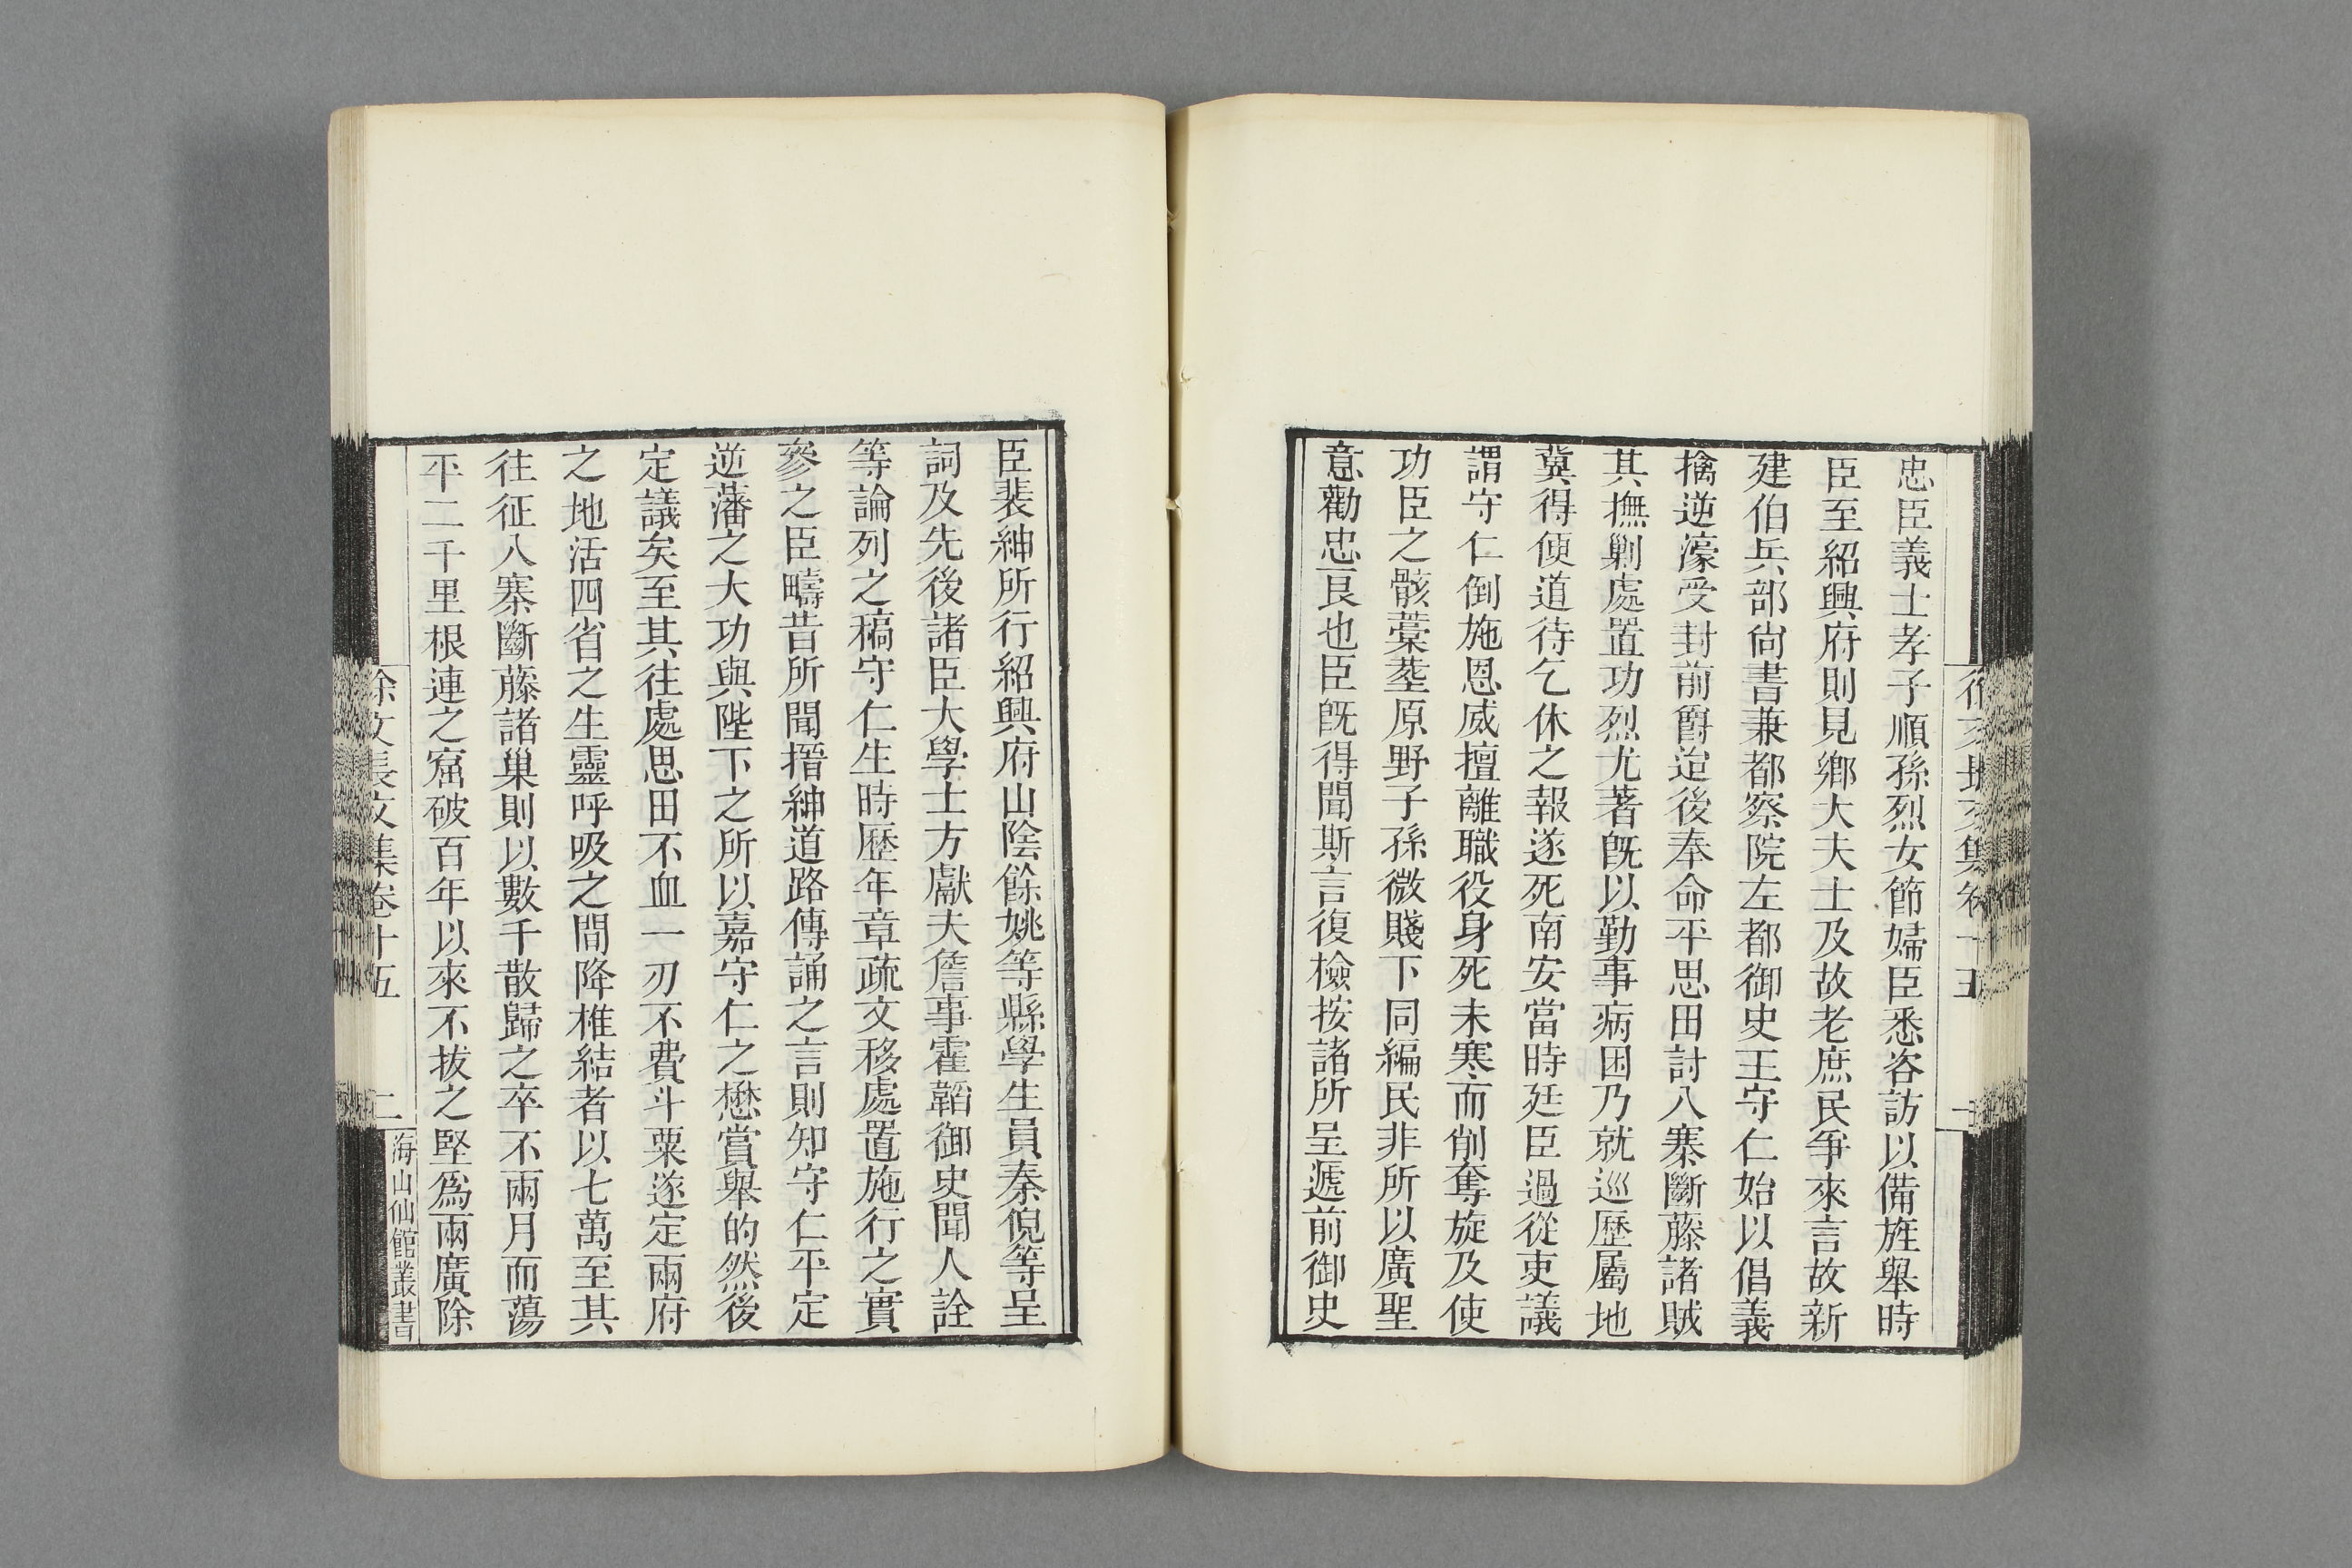 忠臣義士孝子順孫烈女節婦臣悉咨訪以備旌舉時
臣至紹興府則見鄉大夫士及故老庶民爭來言故新
建伯兵部尙書兼都察院左都御史王守仁始以倡義
擒逆濠受封前爵迨後奉命平思田討八寨斷藤諸賊
其撫剿處置功烈尤著旣以勤事病困乃就巡歷屬地
冀得便道待乞休之報遂死南安當時廷臣過從吏議
謂守仁倒施恩威擅離職役身死未寒而削奪旋及使
功臣之骸藁塟原野子孫微賤下同編民非所以廣聖
意勸忠良也臣旣得聞斯言復檢按諸所呈遞前御史
臣裴紳所行紹興府山陰餘姚等縣學生員秦倪等呈
詞及先後諸臣大學士方獻夫詹事霍韜御史聞人詮
等論列之稿守仁生時歷年章疏文移處置施行之實
參之臣疇昔所聞搢紳道路傳誦之言則知守仁平定
逆藩之大功與陛下之所以嘉守仁之懋賞舉的然後
定議矣至其往處思田不血一刃不費斗粟遂定兩府
之地活四省之生靈呼吸之間降椎結者以七萬至其
往征八寨斷藤諸巢則以數千散歸之卒不兩月而蕩
平二千里根連之窟破百年以來不拔之堅爲兩廣除
徐文長文集卷十五
二
海山仙館叢書